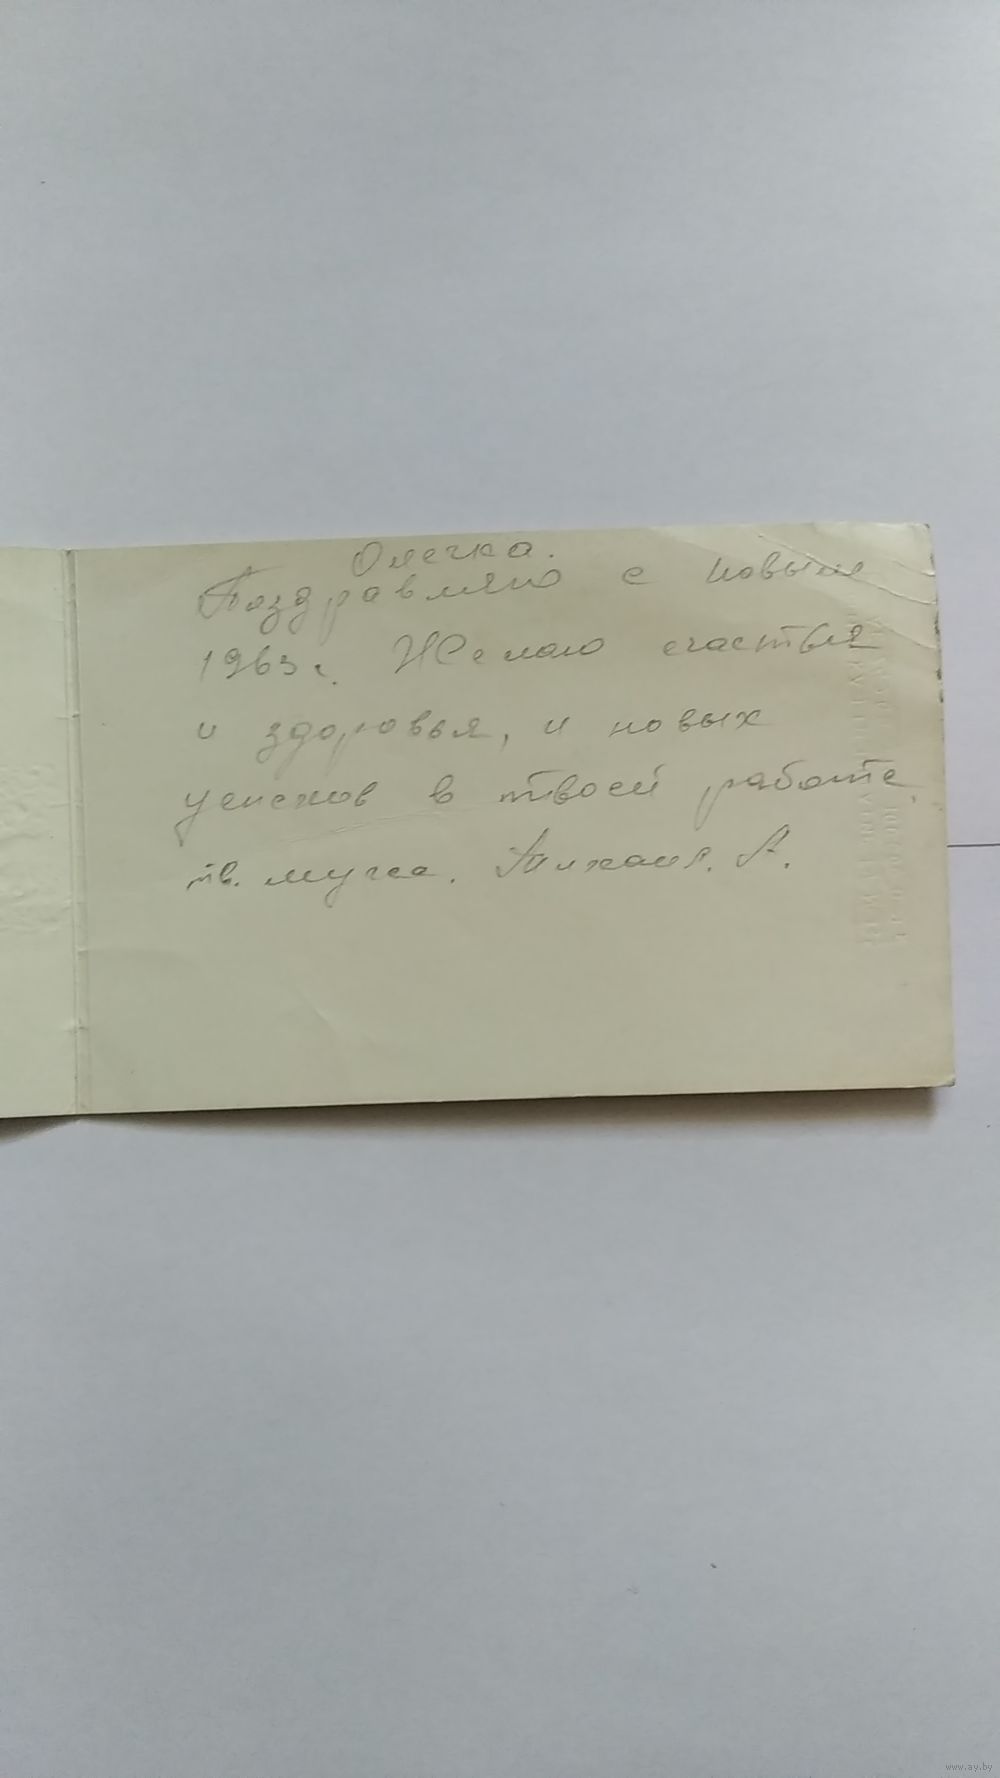 Олечка.
Поздравляю с новым
1963г. Желаю счастья
и здоровья, и новых
успехов в твоей работе.
тв.
www.ay.by